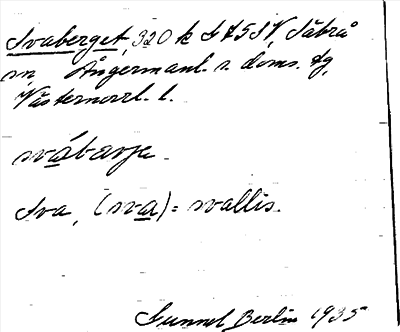 Svaberget, 320 k J 751 V, Säbrå
sn, Ångermanl. s. doms. dg,
Västernorrl. l.
svábærje.
Sva, (sva) = svallis.
Gunnel Berlin 1935